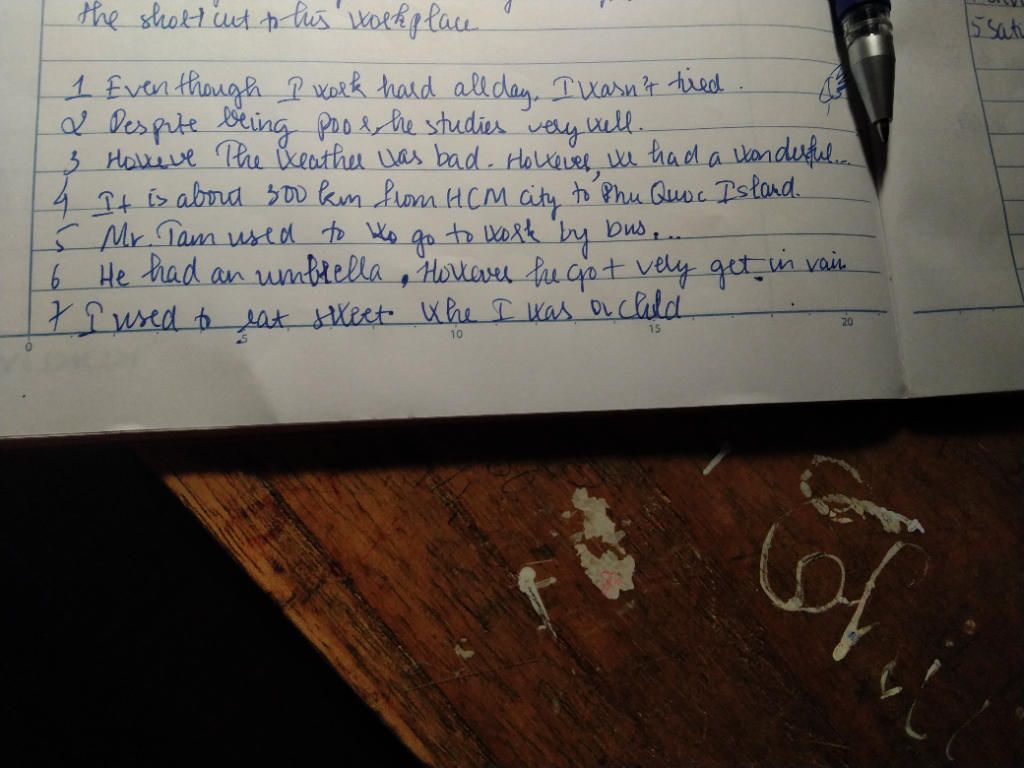 the short cut to his workplace
5 Satu
1 Even though I work hard all day, I wasn't tired.
2 Despite being poor, he studies very well.
3 Howeve The weather was bad. However, we had a wonderful...
4 It is about 300 km from HCM city to Phu Quoc Island.
5 Mr. Tam used to wo go to work by bus...
6 He had an umbrella, However he got very get in rain
7 I used to eat sweet whe I was a child
0 5 10 15 20